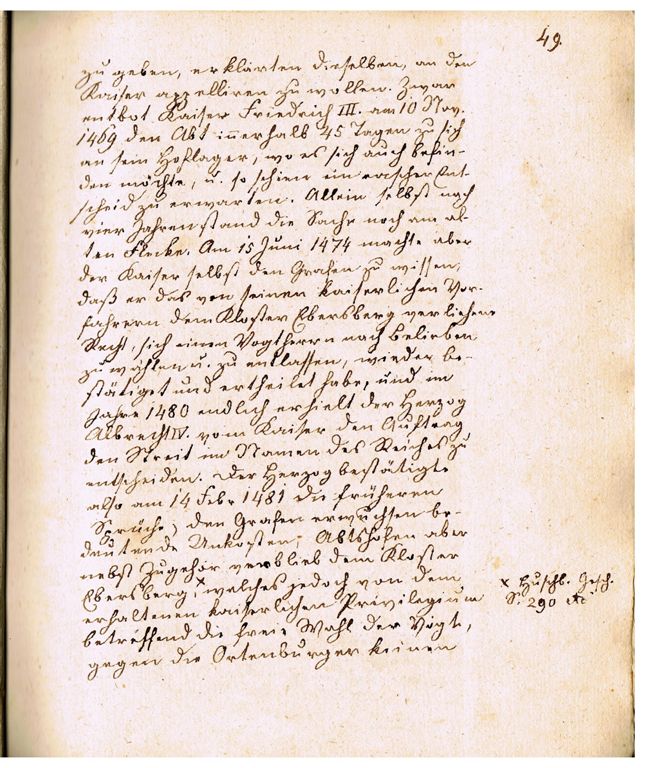 49.
zu geben, erklärten dieselben, an den
Kaiser appelliren zu wollen. Zwar
entbot Kaiser Friedrich III. am 10 Nov.
1469 den Abt innerhalb 45 Tagen zu sich
an sein Hoflager, wo es sich auch befin-
den möchte, u. so schien ein rascher Ent-
scheid zu erwarten. Allein selbst nach
vier Jahren stand die Sache noch am al-
ten Flecke. Am 15 Juni 1474 machte aber
der Kaiser selbst den Grafen zu wissen,
daß er das von seinen kaiserlichen Vor-
fahrern dem Kloster Ebersberg verliehene
Recht, sich einen Vogtherrn nach Belieben
zu wählen u. zu entlassen, wieder be-
stätiget und ertheilet habe, und im
Jahre 1480 endlich erhielt der Herzog
Albrecht IV. vom Kaiser den Auftrag
den Streit im Namen des Reiches zu
entscheiden. Der Herzog bestätigte
also am 14 Febr 1481 die früheren
Sprüche, den Grafen erwuchsen be-
deutende Unkosten; Abtshofen aber
nebst Zugehör verblieb dem Kloster
Ebersberg x, welches jedoch von dem
x Huschb. Gesch.
S. 290 etc
erhaltenen kaiserlichen Privilegium
betreffend die freie Wahl der Vögte,
gegen die Ortenburger keinen